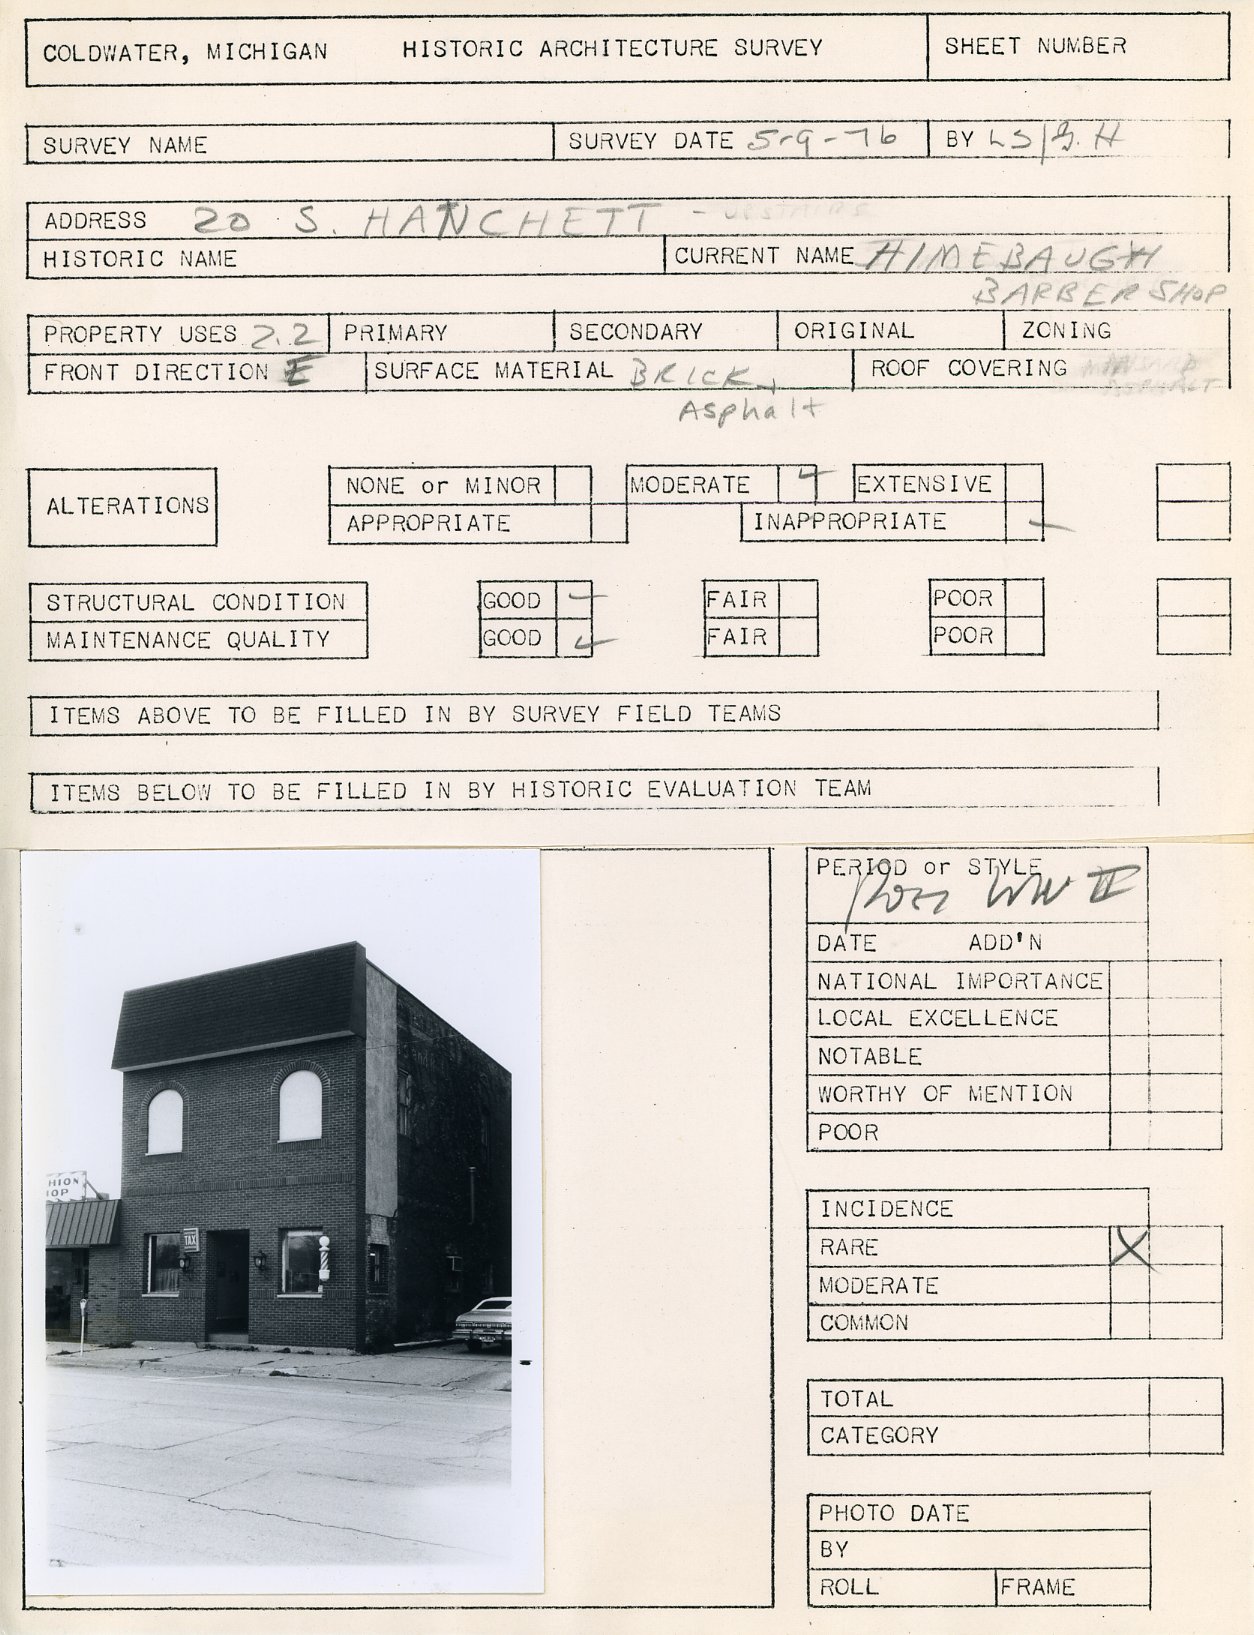 COLDWATER, MICHIGAN HISTORIC ARCHITECTURE SURVEY SHEET NUMBER
SURVEY NAME SURVEY DATE 5-9-76 BY LS/G.H
ADDRESS 20 S. HANCHETT - UPSTAIRS
HISTORIC NAME CURRENT NAME HIMEBAUGH
BARBER SHOP
PROPERTY USES 2.2 PRIMARY SECONDARY ORIGINAL ZONING
FRONT DIRECTION E SURFACE MATERIAL BRICK + ROOF COVERING MANSARD
Asphalt ASPHALT
ALTERATIONS NONE or MINOR MODERATE EXTENSIVE
APPROPRIATE INAPPROPRIATE
STRUCTURAL CONDITION GOOD FAIR POOR
MAINTENANCE QUALITY GOOD FAIR POOR
ITEMS ABOVE TO BE FILLED IN BY SURVEY FIELD TEAMS
ITEMS BELOW TO BE FILLED IN BY HISTORIC EVALUATION TEAM
PERIOD or STYLE
WW II
DATE ADD'N
NATIONAL IMPORTANCE
LOCAL EXCELLENCE
NOTABLE
WORTHY OF MENTION
POOR
HION
OP
TAX
INCIDENCE
RARE X
MODERATE
COMMON
TOTAL
CATEGORY
PHOTO DATE
BY
ROLL FRAME